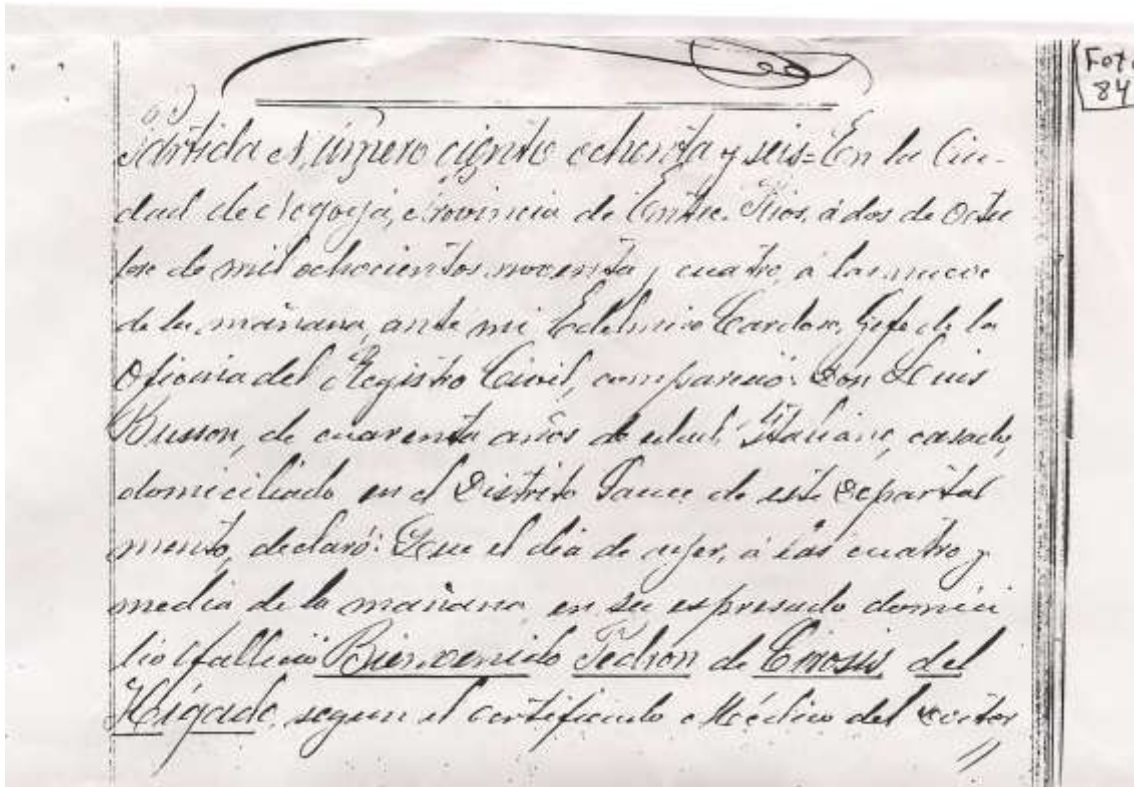 Foto
84
Partida Número ciento ochenta y seis = En la Ciu-
dad de Nogoyá, Provincia de Entre Rios, á dos de Octu
bre de mil ochocientos noventa y cuatro, á las nueve
de la mañana, ante mi Edelmiro Cardoso, Gefe de la
Oficina del Registro Civil, compareció: Don Luis
Busson, de cuarenta años de edad, Italiano, casado,
domiciliado en el Distrito Sauce de este Departa
mento, declaró: Que el dia de ayer, á las cuatro y
media de la mañana en su espresado domici
lio falleció Bienvenido Pedron de Cirosis del
Hígado, segun el certificado Médico del Doctor